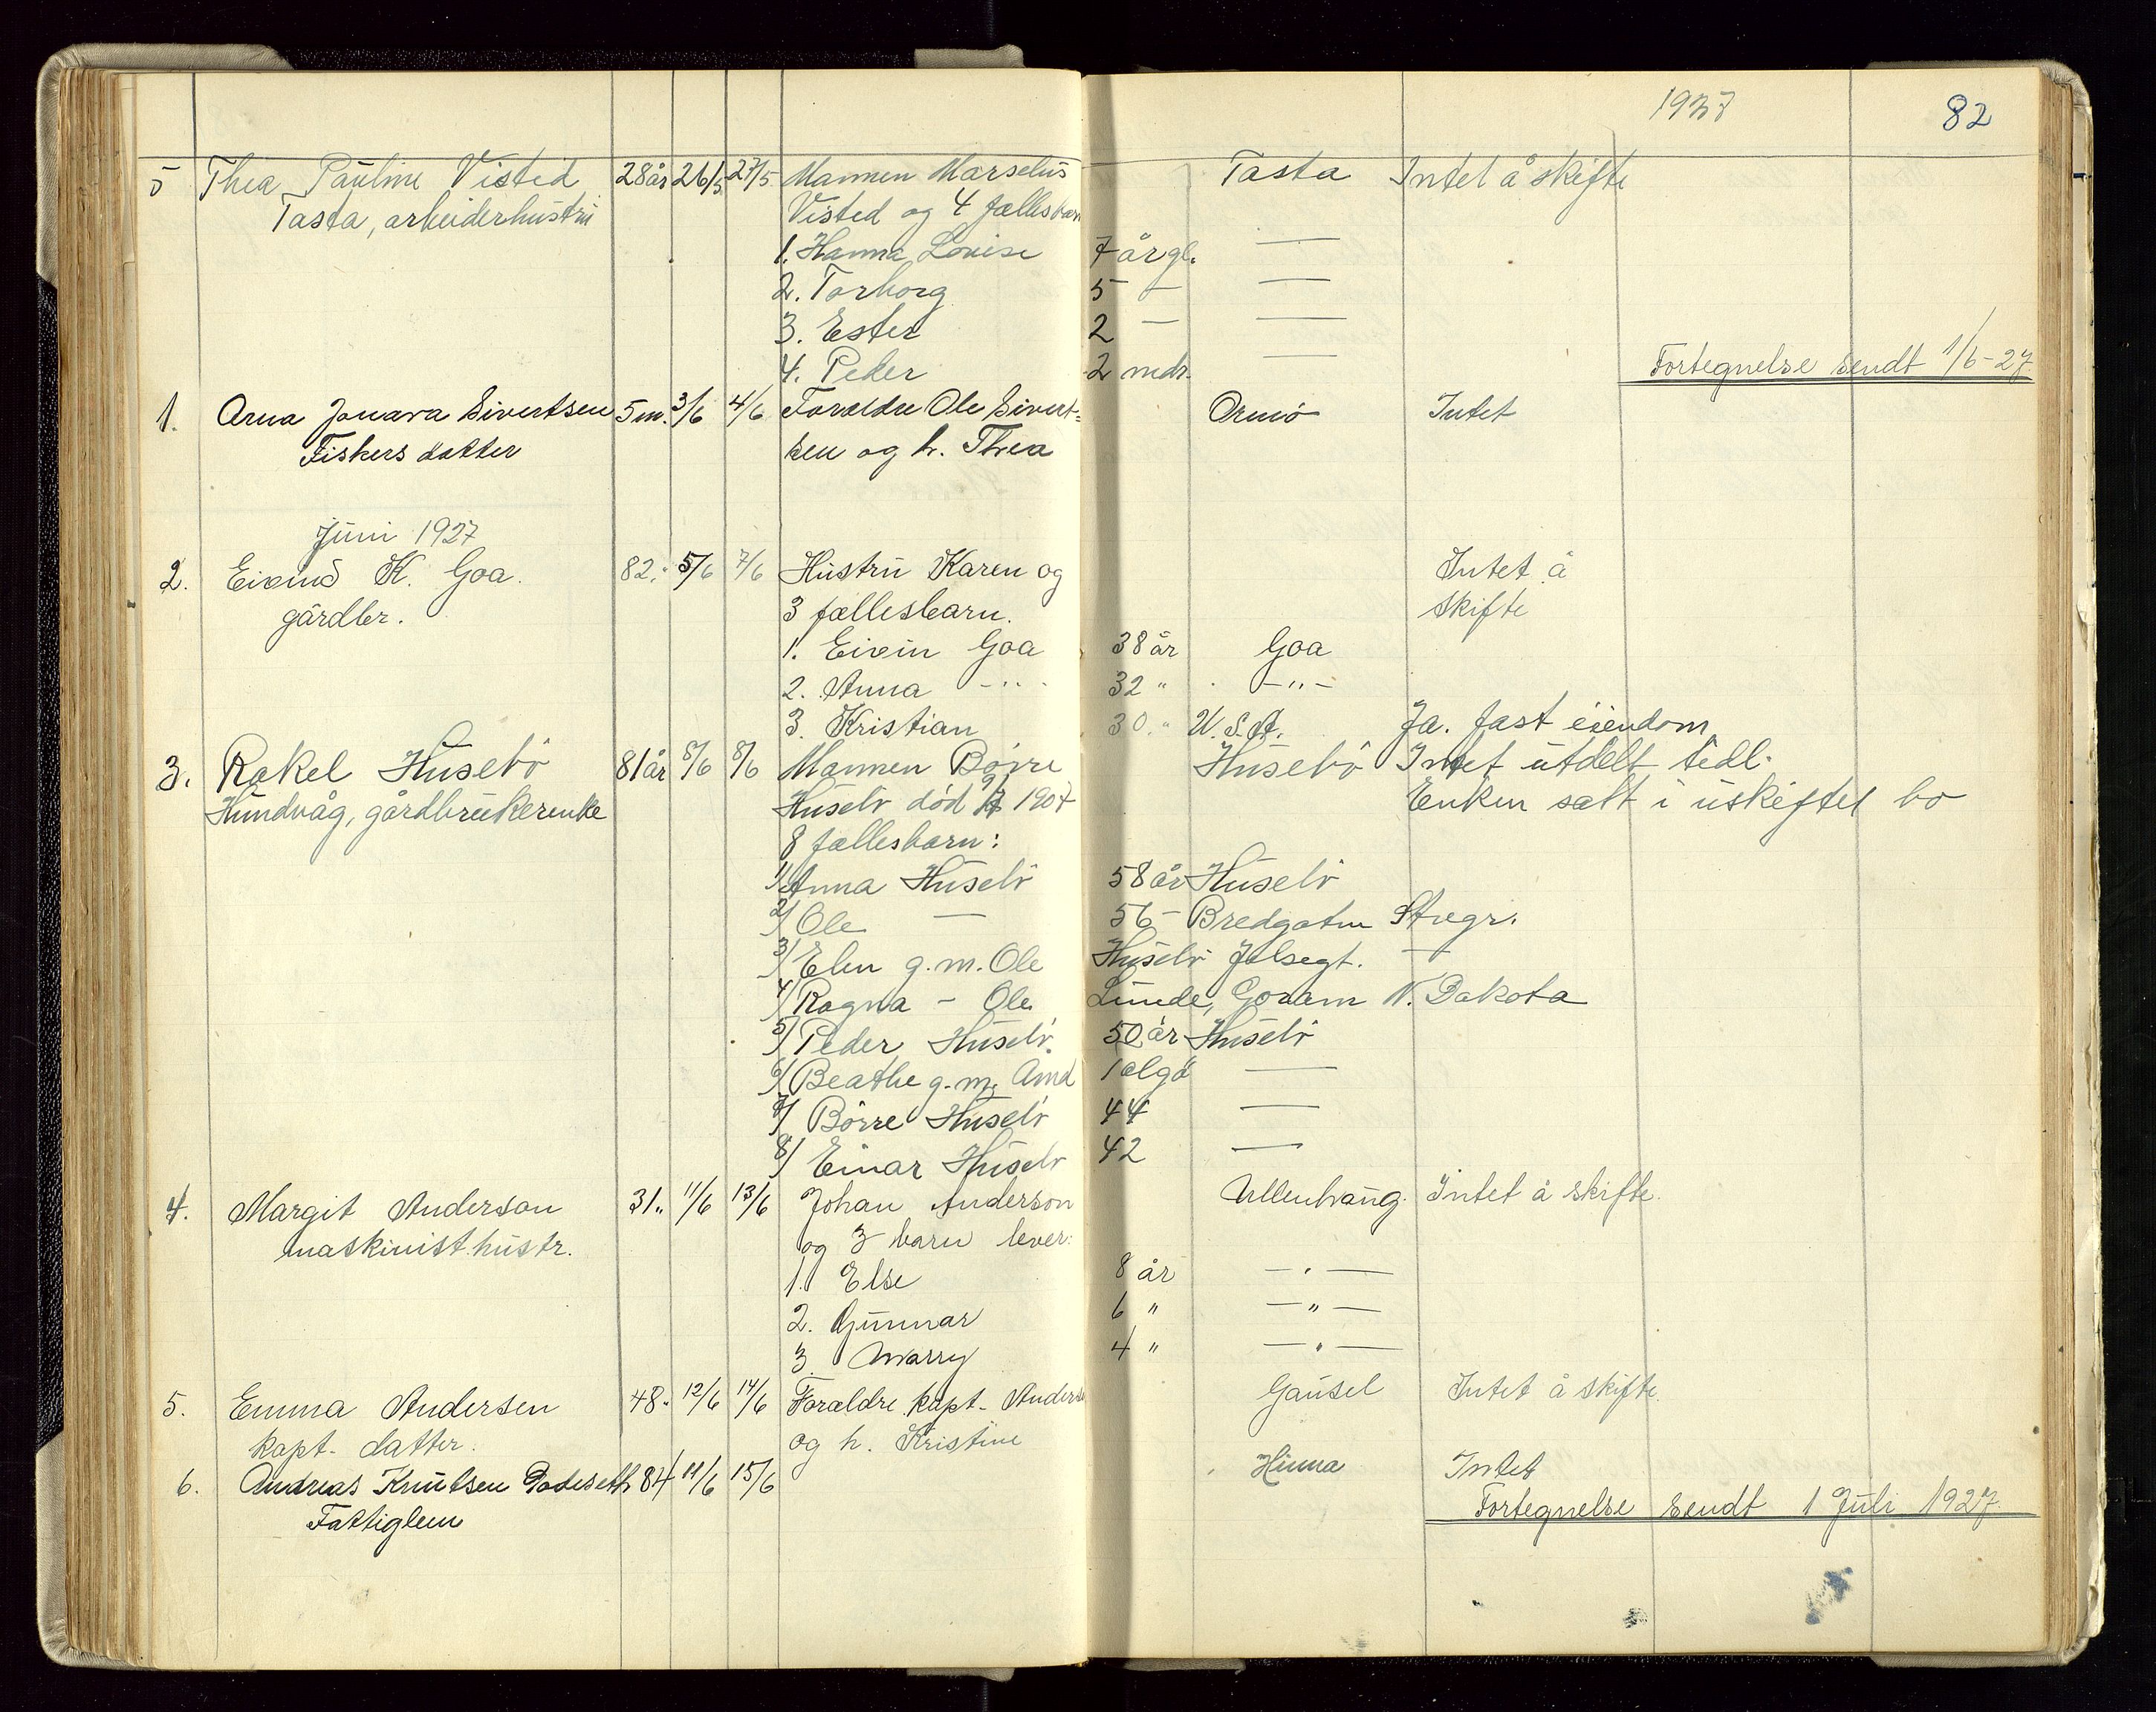 1927 82
5 Thea Pauline Visted 28 år 26/5 27/5 Mannen Marselius Tasta Intet å skifte
Tasta, arbeiderhustru Visted og 4 fællesbarn
1. Hanna Lovise 7 år gl. —
2. Torborg 5 — —
3. Ester 2 — —
4. Peder 2 mdr. —
Fortegnelse sendt 1/6-27
1. Arna Jonara Sivertsen 5 m. 3/6 4/6 Foreldre Ole Sivert= Ormö Intet
Fiskers datter sen og h. Thea
Juni 1927
2. Eivind K. Goa. 82. 5/6 7/6 Hustru Karen og Intet å
gårdbr. 3 fællesbarn. skifte
1. Eivin Goa 38 år Goa
2. Anna -"- 32 " -"-
3. Kristian 30 " U.S.A. Ja. fast eiendom
3. Rakel Husebö 81 år 8/6 8/6 Mannen Börre Husebö Intet utdelt tidl.
Hundvåg, gårdbrukerenke Husebö död 1904 Enken satt i uskiftet bo
8 fællesbarn:
1/ Anna Husebö 58 år Husebö
2/ Ole — 56 — Bredgaten Stvgr.
3/ Elen g.m. Ole Husebö Jelsegt. —
4/ Ragna — Ole Lunde, Goram N. Dakota
5/ Peder Husebö. 50 år Husebö
6/ Beathe g.m. Amd Talgö —
7/ Börre Husebö 44 —
8/ Einar Husebö 42 —
4. Margit Anderson 31. 11/6 13/6 Johan Anderson Ullenhaug. Intet å skifte.
maskinist.hustr. og 3 barn lever:
1. Else 8 år — " —
2. Gunnar 6 " — " —
3 Warry 4 " — " —
5. Emma Andersen 48. 12/6 14/6 Forældre kapt. Anderse Gausel Intet å skifte.
kapt. datter. og h. Kristine
6. Andreas Knutsen Godeseth 84 11/6 15/6 Hinna Intet
Fattiglem Fortegnelse sendt 1 Juli 1927.